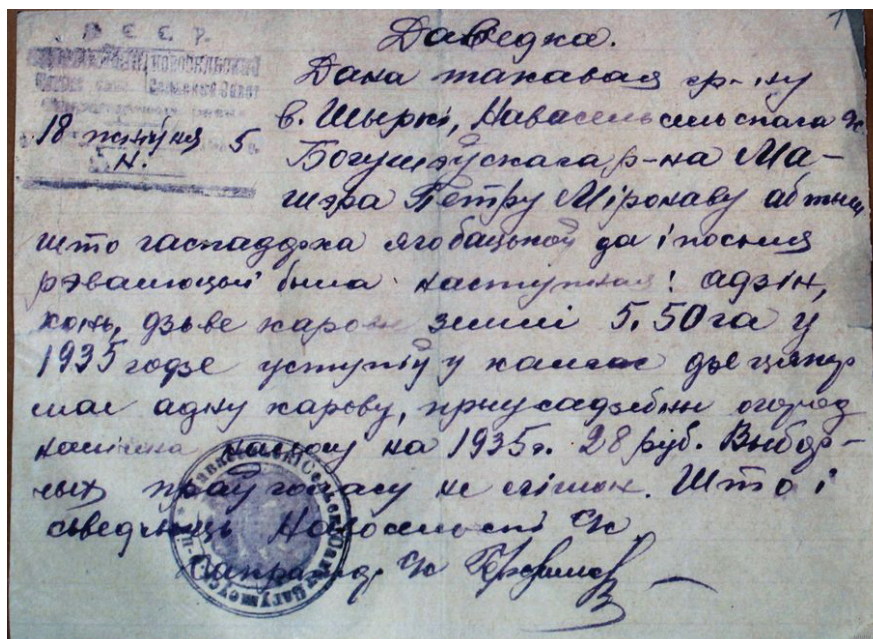 1
Б С С Р
Даведка.
Дана такавая гр-ну
в. Шыркі, Навасельскага
18 жніўня 5
Богушэўскага р-на Ма-
шэра Петру Міронаву аб тым
што гаспадарка яго бацькоў да і посьля
рэвалюцыі была наступная: адзін,
конь, дзьве каровы зямлі 5.50 га у
1935 годзе уступіў у калгас дзе цяпер
мае адну карову, прысадзебны огород
на 1935 г. 28 руб. Выбар-
ных праў голасу не лішон. Што і
сьведчыць